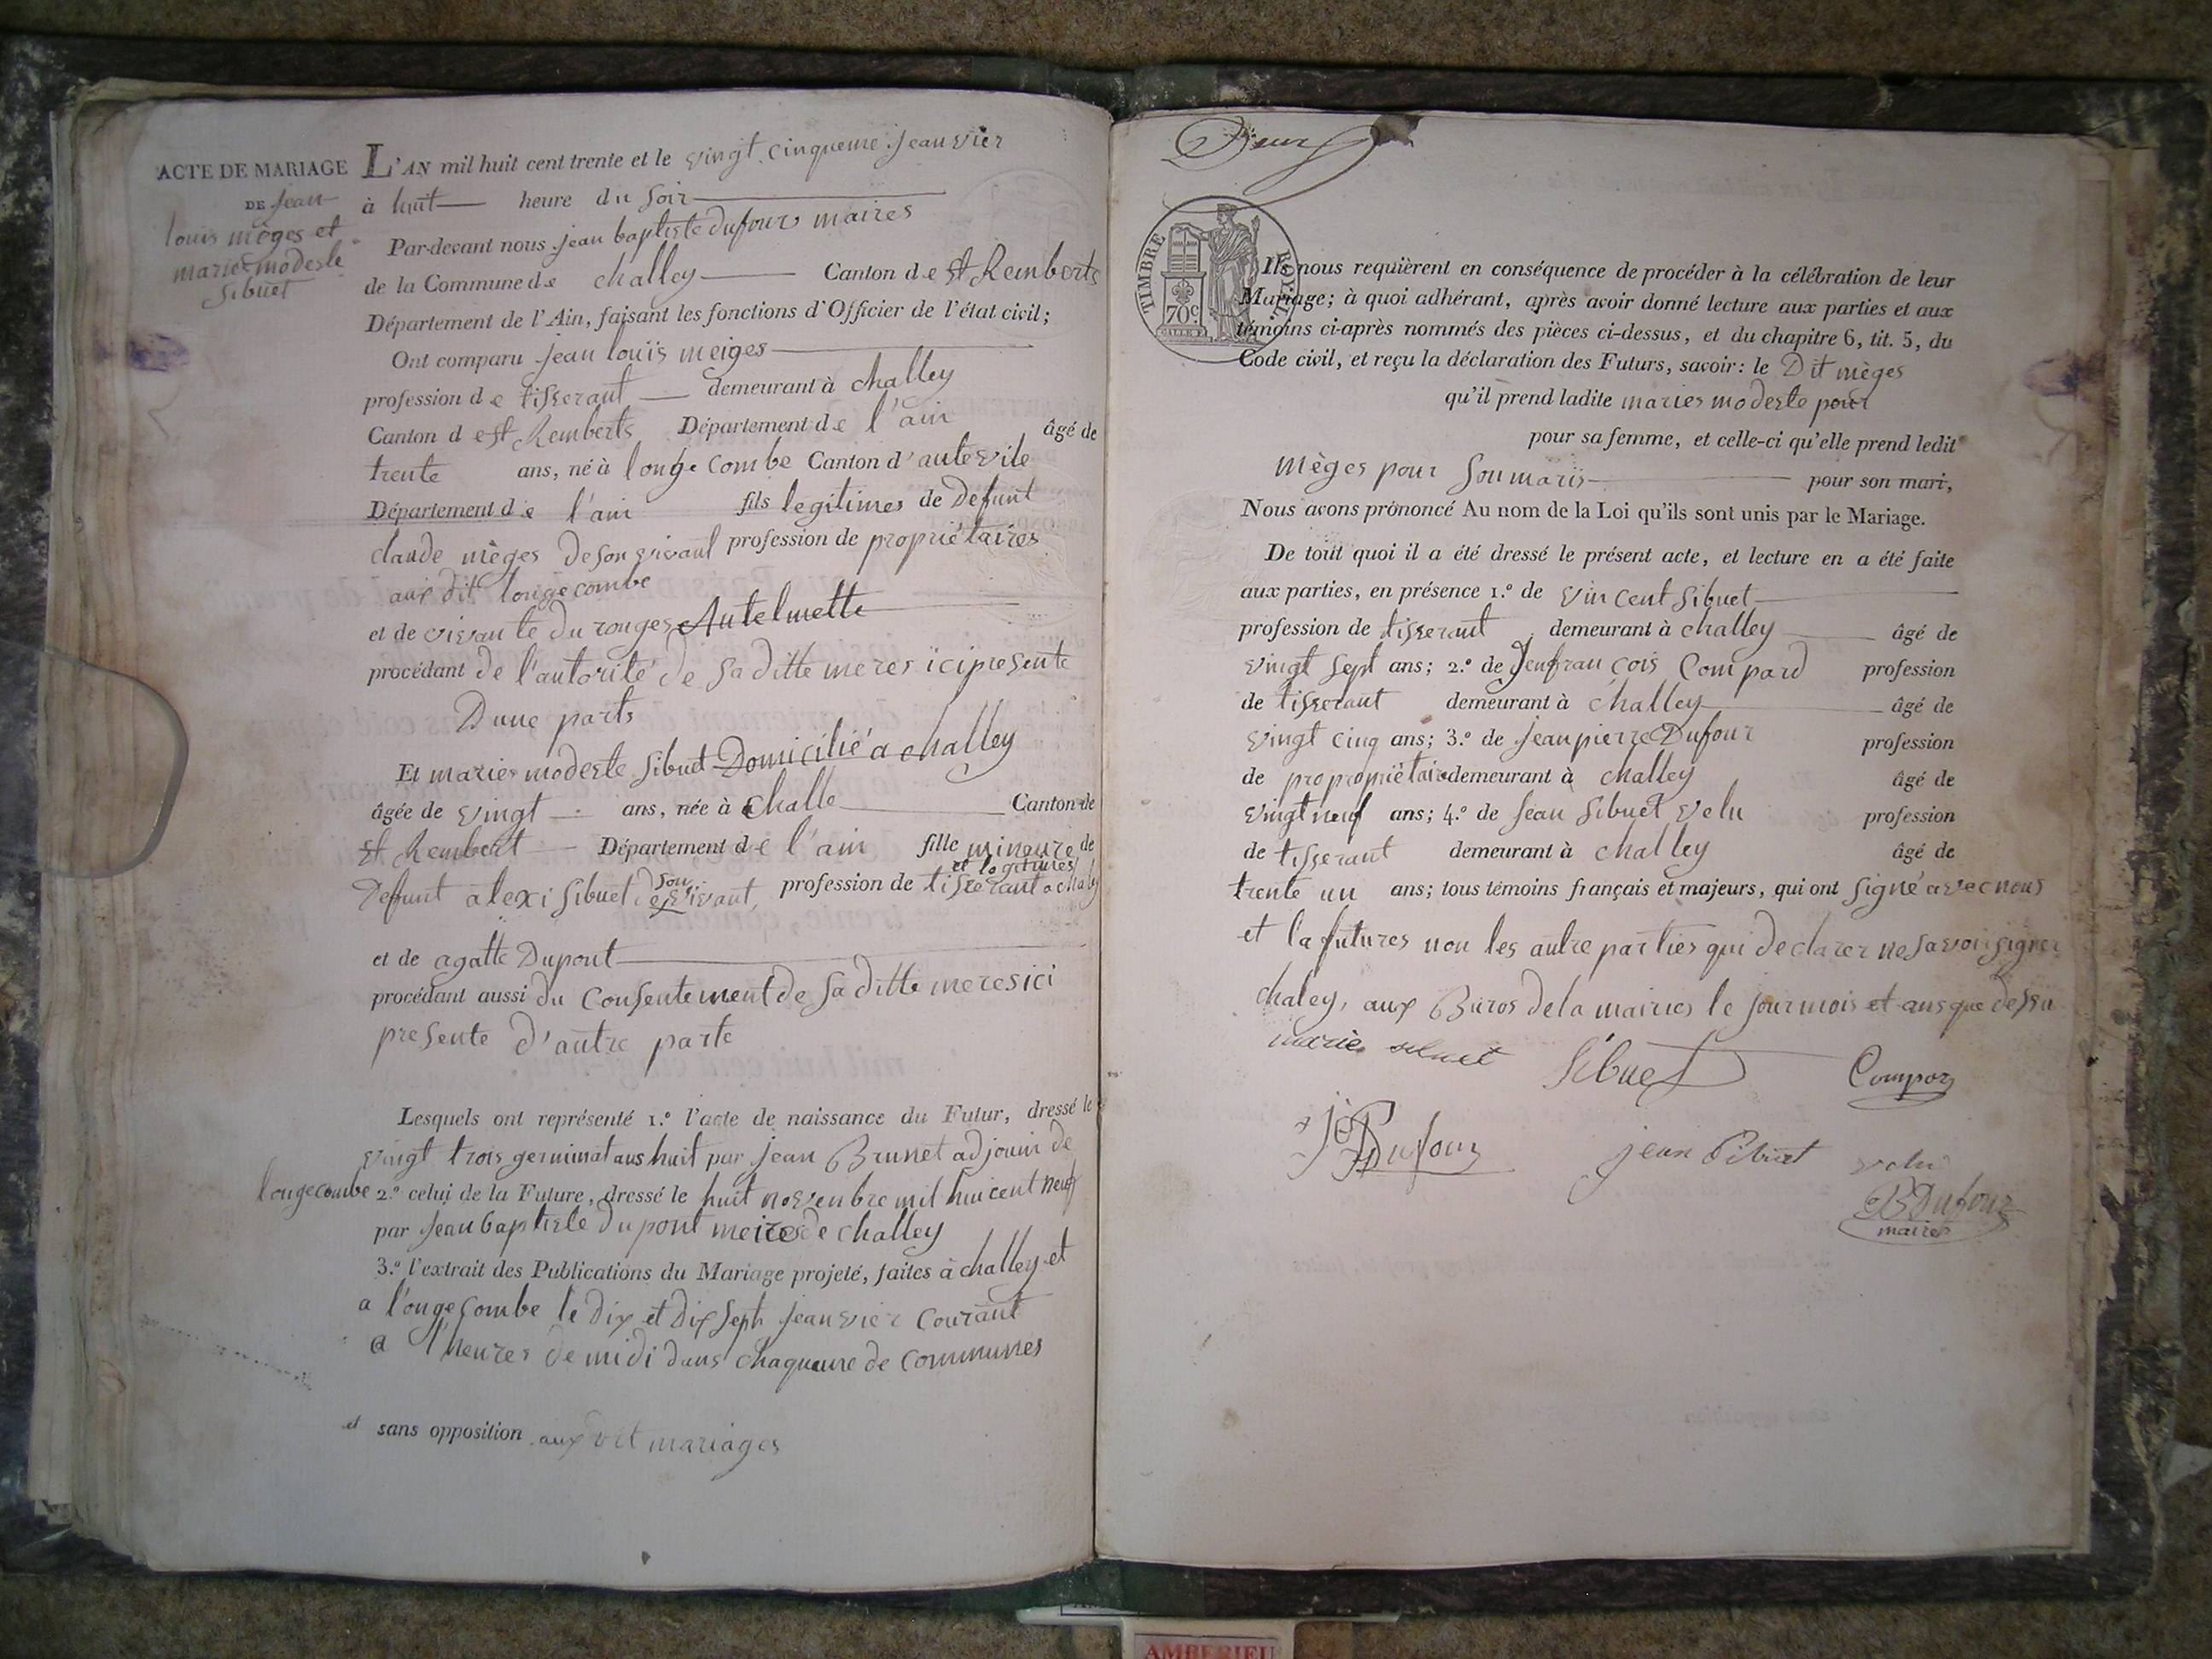 ACTE DE MARIAGE
DE Jean
louis mèges et
maries modeste
Sibuet
L'AN mil huit cent trente et le vingt cinqueme jeanvier
à huit heure du Soir
Par-devant nous jean baptiste dufour maires
de la Commune de challey Canton de St Remberts
Département de l'Ain, faisant les fonctions d'Officier de l'état civil;
Ont comparu jean louis meiges
profession de tisserant demeurant à challey
Canton d e St Remberts Département de l'ain âgé de
trente ans, né à longe combe Canton d'autevile
Département de l'ain fils legitimes de Defunt
claude mèges de son vivant profession de propriétaires
aux dit longecombe
et de vivante du rouges Antelmette
procédant de l'autorité de sa ditte meres ici presente
Dune parts
Et maries modeste Sibuet Domicilié a challey
âgée de vingt ans, née à challe Canton de
St Rembert Département de l'ain fille mineure de
et legitimes
Defunt alexi Sibuet de son vivant, profession de tisserant a chaley
et de agatte Dupont
procédant aussi du Consentement de sa ditte meres ici
presente d'autre parte
Lesquels ont représenté 1.º l'acte de naissance du Futur, dressé le
vingt trois germinal ans huit par jean Brunet adjouin de
longecombe 2.º celui de la Future, dressé le huit novenbre mil huicent neuf
par jean baptiste dupont meires de challey
3.º l'extrait des Publications du Mariage projeté, faites à challey et
a l'ongecombe le dix et dix seph jeanvier courant
a l'heures de midi dans chaqueune de communes
et sans opposition aux dit mariages
Deux
TIMBRE ROYAL
70c
Ils nous requièrent en conséquence de procéder à la célébration de leur
Mariage; à quoi adhérant, après avoir donné lecture aux parties et aux
témoins ci-après nommés des pièces ci-dessus, et du chapitre 6, tit. 5, du
Code civil, et reçu la déclaration des Futurs, savoir: le Dit mèges
qu'il prend ladite maries modeste pour
pour sa femme, et celle-ci qu'elle prend ledit
mèges pour son maris pour son mari,
Nous avons prononcé Au nom de la Loi qu'ils sont unis par le Mariage.
De tout quoi il a été dressé le présent acte, et lecture en a été faite
aux parties, en présence 1.º de vincent Sibuet
profession de tisserant demeurant à challey âgé de
vingt sept ans; 2.º de Jenfrancois Compard profession
de tisserant demeurant à challey âgé de
vingt cinq ans; 3.º de jean pierre Dufour profession
de propropriétaire demeurant à challey âgé de
vingt neuf ans; 4.º de jean Sibuet velu profession
de tisserant demeurant à challey âgé de
trente un ans; tous témoins français et majeurs, qui ont signé avec nous
et la futures non les autre parties qui declarer ne savoir signer
chaley, aux Buros de la mairies le jour mois et ans que dessu
marie sibuet Sibuet Compar
jp Dufour jean Sibuet velu
JB Dufour
maires
AMBERIEU